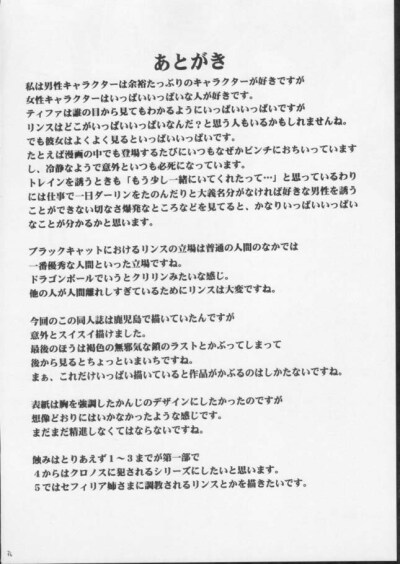 あとがき
私は男性キャラクターは余裕たっぷりのキャラクターが好きですが
女性キャラクターはいっぱいいっぱいな人が好きです。
ティファは誰の目から見てもわかるようにいっぱいいっぱいですが
リンスはどこがいっぱいいっぱいなんだ？と思う人もいるかもしれませんね。
でも彼女はよくよく見るといっぱいいっぱいです。
たとえば漫画の中でも登場するたびにいつもなぜかピンチにおちいっています
し、冷静なようで意外といつも必死になっています。
トレインを誘うときも「もう少し一緒にいてくれたって…」と思っているわり
には仕事で一日ダーリンをたのんだりと大義名分がなければ好きな男性を誘う
ことができない切なさ爆発なところなどを見てると、かなりいっぱいいっぱい
なことが分かるかと思います。
ブラックキャットにおけるリンスの立場は普通の人間のなかでは
一番優秀な人間といった立場ですね。
ドラゴンボールでいうとクリリンみたいな感じ。
他の人が人間離れしすぎているためにリンスは大変ですね。
今回のこの同人誌は鹿児島で描いていたんですが
意外とスイスイ描けました。
最後のほうは褐色の無邪気な鎖のラストとかぶってしまって
後から見るとちょっといまいちですね。
まぁ、これだけいっぱい描いていると作品がかぶるのはしかたないですね。
表紙は胸を強調したかんじのデザインにしたかったのですが
想像どおりにはいかなかったような感じです。
まだまだ精進しなくてはならないですね。
蝕みはとりあえず１～３までが第一部で
４からはクロノスに犯されるシリーズにしたいと思います。
５ではセフィリア姉さまに調教されるリンスとかを描きたいです。